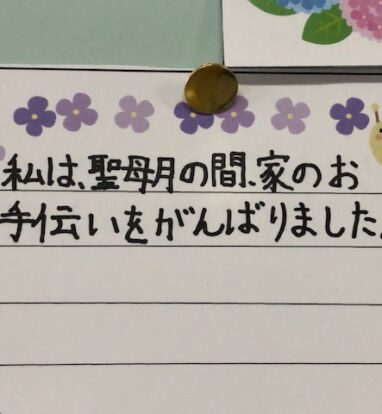 私は、聖母月の間、家のお
手伝いをがんばりました。